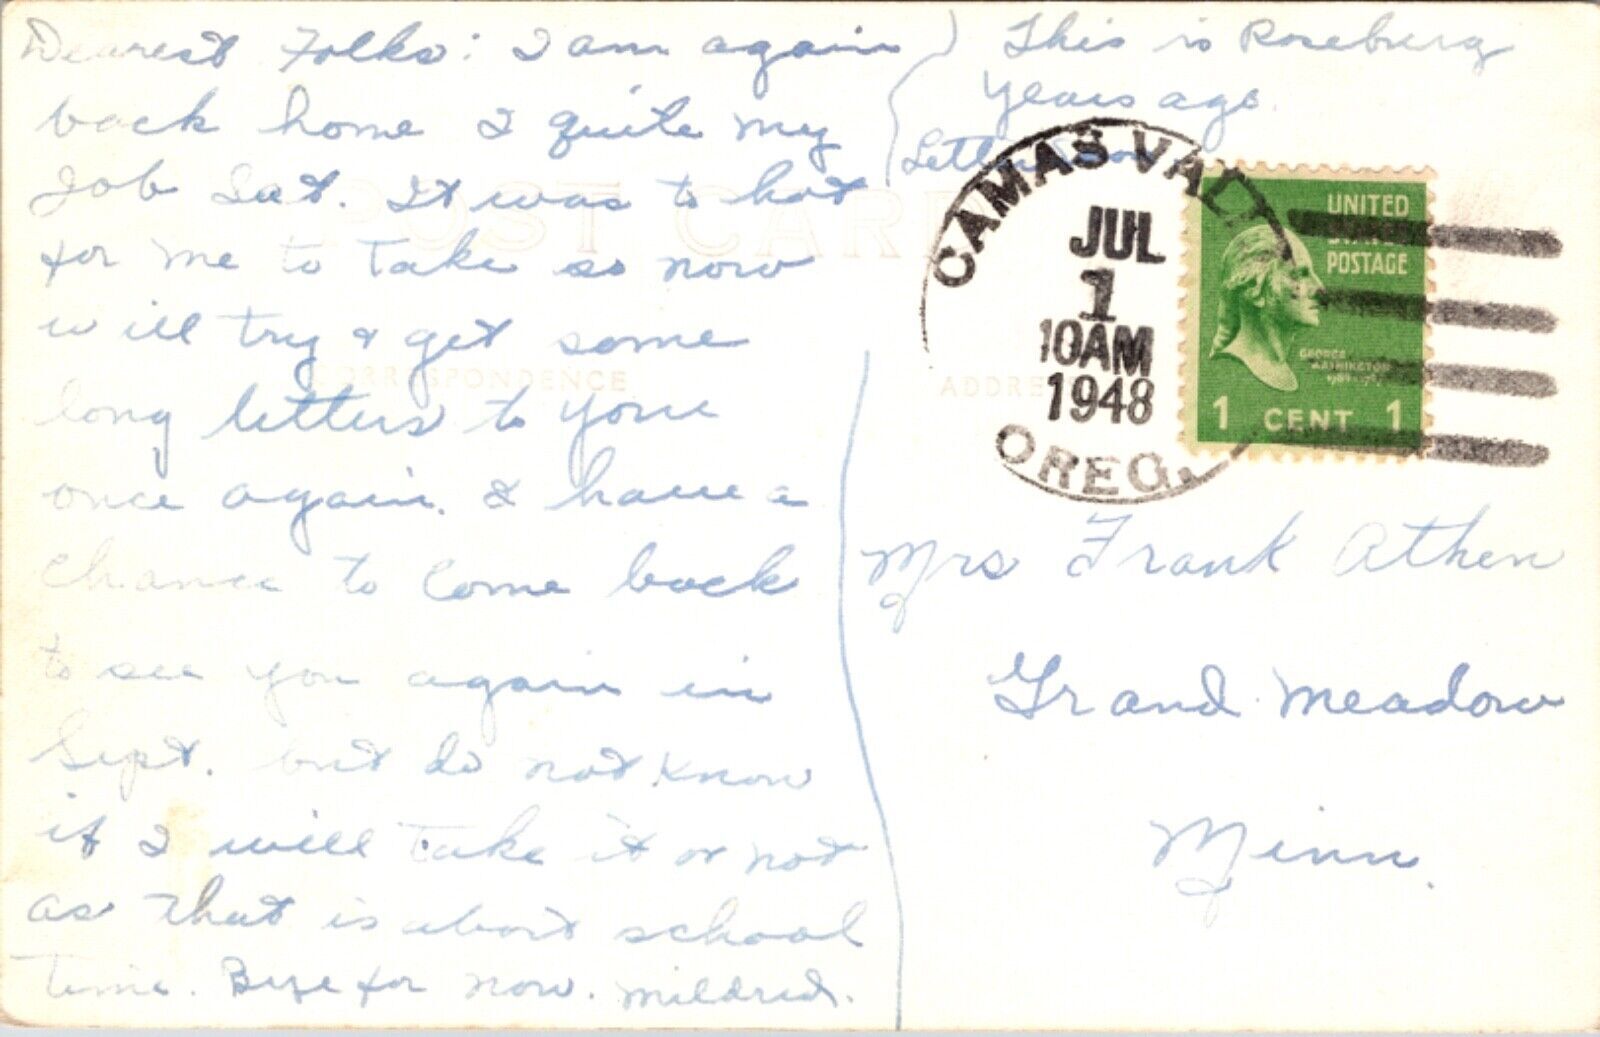 Dearest Folks: I am again
back home I quite my
Job Sat. It was to hot
for me to take so now
will try & get some
long letters to your
once again. & have a
chance to come back
to see you again in
Sept. but do not know
if I will take it or not
as that is about school
time. Bye for now. Mildred.
This is Roseburg
years ago
Letter
POST CAR
CORRESPONDENCE
ADDRE
CAMAS VAL
JUL
1
10AM
1948
OREG.
UNITED
STATES
POSTAGE
GEORGE
WASHINGTON
1 CENT 1
Mrs Frank Athen
Grand Meadow
Minn.